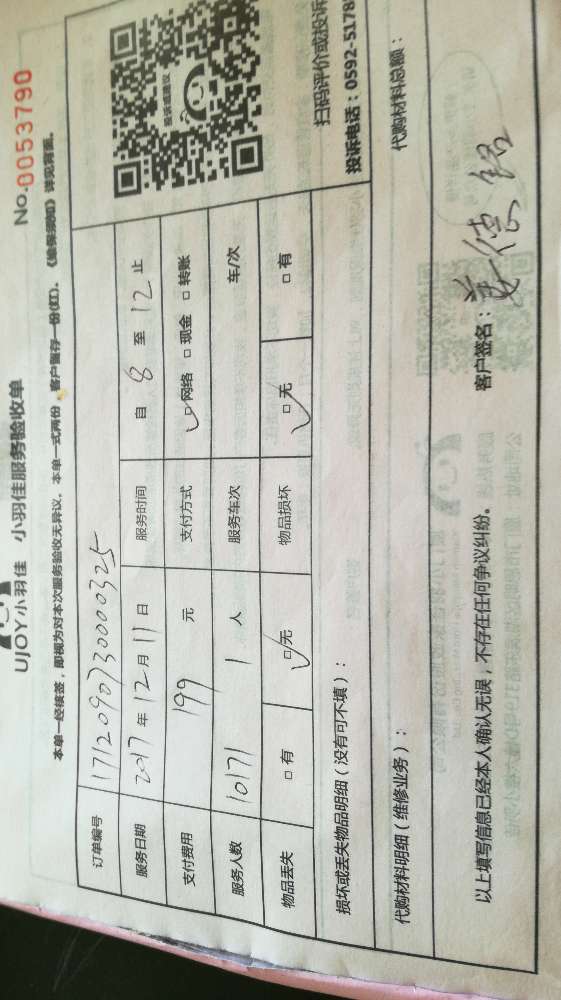 UJOY小羽佳 小羽佳服务验收单
No.0053790
本单一经核签，即视为对本次服务验收无异议。本单一式两份，客户留存一份(红)。《维保须知》详见背面。
订单编号 17120907300000325
服务日期 2017年12月11日 服务时间 自 8 至 12 止
支付费用 199 元 支付方式 网络 现金 转账
服务人数 10171 1 人 服务车次 车/次
物品丢失 有 无 物品损坏 无 有
投诉或建议
扫码评价或投诉
投诉电话：0592-5178
损坏或丢失物品明细（没有可不填）：
代购材料明细（维修业务）：
代购材料总额：
以上填写信息已经本人确认无误，不存在任何争议纠纷。
客户签名：